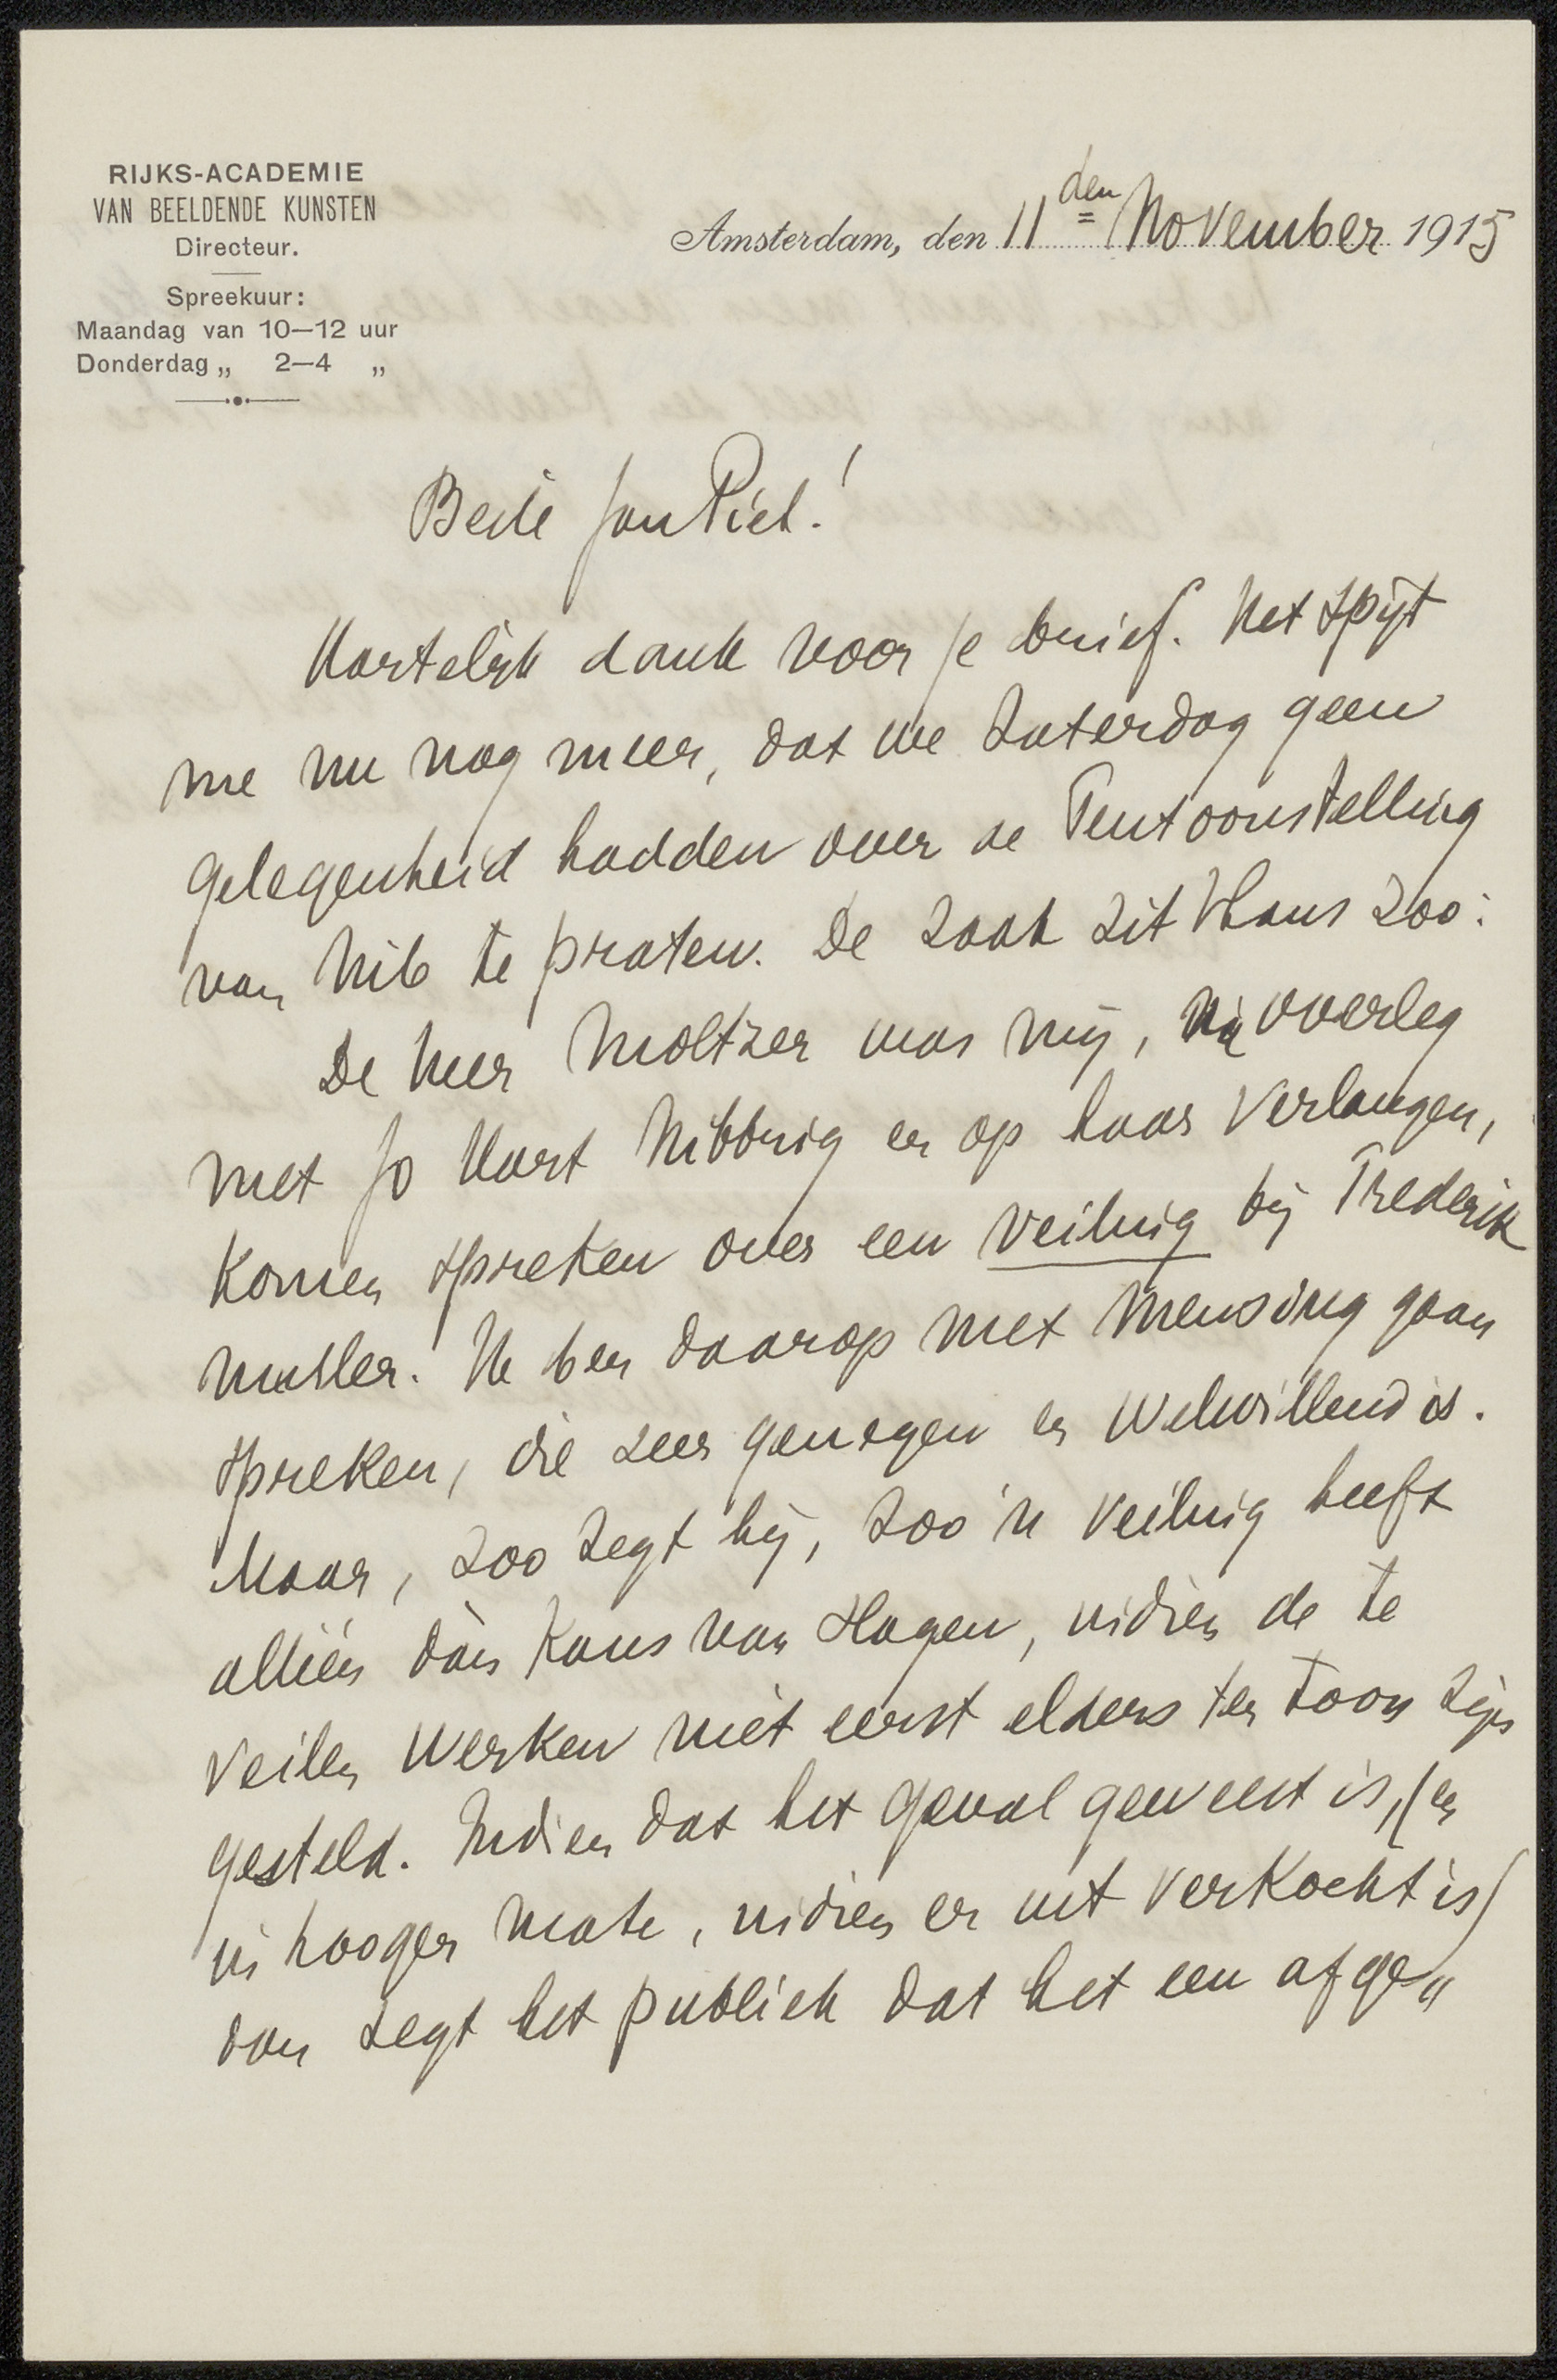 RIJKS-ACADEMIE
VAN BEELDENDE KUNSTEN
Directeur.
Spreekuur:
Maandag van 10—12 uur
Donderdag „ 2—4 „
Amsterdam, den 11den November 1915
Beste Jan Piet!
Hartelijk dank voor je brief. Het spijt
me nu nog meer, dat we Zaterdag geen
gelegenheid hadden over de Tentoonstelling
van Nib te praten. De zaak zit thans zoo:
De heer Moltzer was mij, na overleg
met Jo Hart Nibbrig en op haar verlangen,
komen spreken over een veiling bij Frederik
Muller. Ik ben daarop met Mensing gaan
spreken, die zeer genegen en welwillend is.
Maar, zoo zegt hij, zoo'n veiling heeft
alléén dàn kans van slagen, indien de te
veilen werken niet eerst elders ten toon zijn
gesteld. Indien dat het geval geweest is, (en
in hooger mate, indien er uit verkocht is)
dan zegt het publiek dat het een afge„